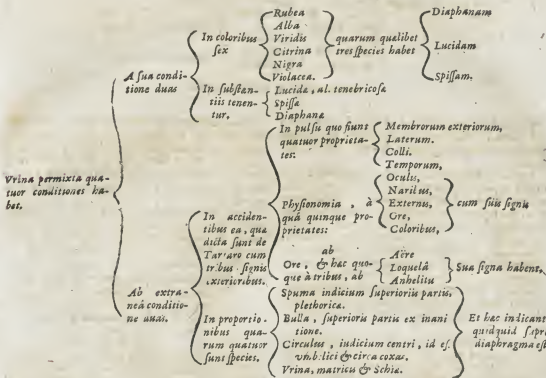 Vrina permixta qua-
tuor conditiones ha-
bet.
A sua condi-
tione duas
In coloribus
sex
Rubea
Alba
Viridis
Citrina
Nigra
Violacea.
quarum quælibet
tres species habet
Diaphanam
Lucidam
Spissam.
In substan-
tiis tenen-
tur,
Lucida, al. tenebricosa
Spissa
Diaphana
Ab extra-
neâ conditio-
ne duas.
In acciden-
tibus ea, quæ
dicta sunt de
Tartaro cum
tribus signis
exterioribus.
In pulsu quo fiunt
quatuor proprieta-
tes:
Membrorum exteriorum,
Laterum.
Colli.
Temporum,
Physionomia, à
quâ quinque pro-
prietates:
Oculis,
Naribus,
Externus,
Ore,
Coloribus,
cum suis signis
ab
Ore, & hæc quo-
que à tribus, ab
Aëre
Loquelâ
Anhelitu
Sua signa habent,
In proportio-
nibus qua-
rum quatuor
sunt species.
Spuma indicium superioris partis,
plethorica.
Bulla, superioris partis ex inani
tione.
Circulus, indicium centri, id est
vmbilici & circa coxas,
Vrina, matricis & Schiæ.
Et hæc indicant
quidquid supra
diaphragma est